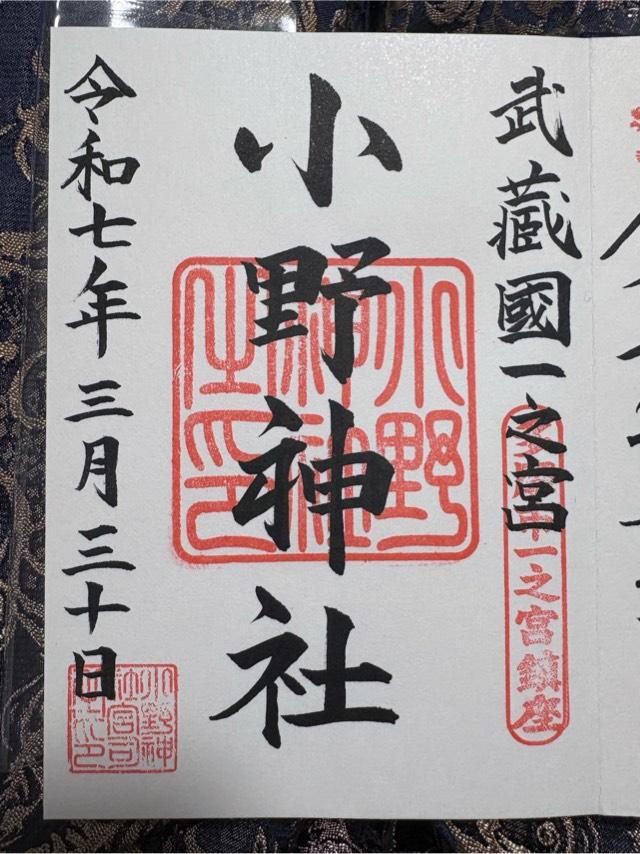 武蔵國一之宮
一之宮鎮座
小野神社
小野神社之印
令和七年三月三十日